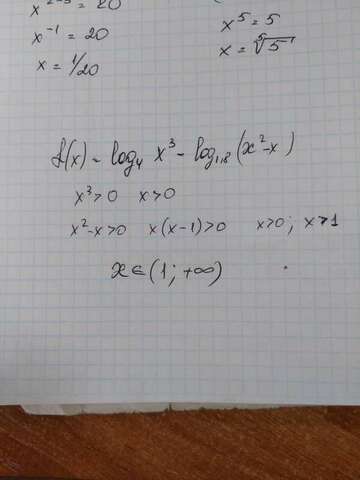 x²⁻³ = 20
x⁻¹ = 20
x = 1/20
x⁵ = 5
x = ⁵√5
f(x) = log₄ x³ - log₁,₈ (x²-x)
x³>0 x>0
x²-x>0 x(x-1)>0 x>0; x>1
x∈(1; +∞)